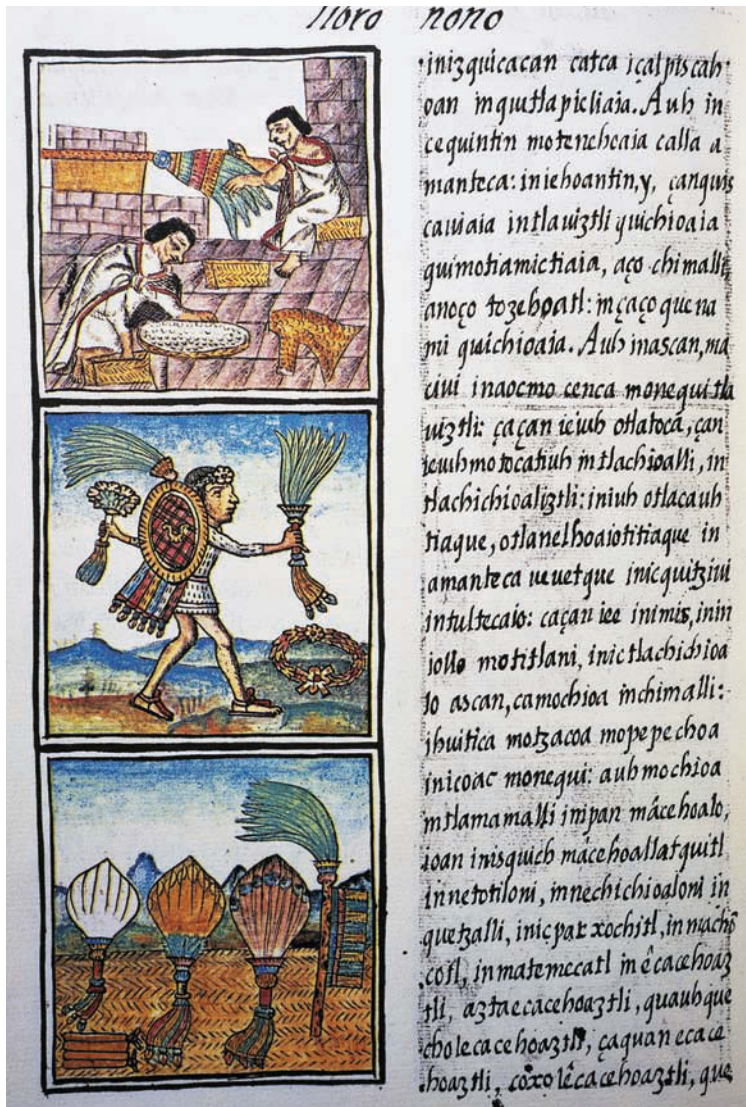 libro nono
inizquicacan catca içalpiscah
oan inquitlapieliaia. Auh in
cequintin motenehoaia calla a
manteca: iniehoantin, y, çanquis
caviaia intlauiztli quichioaia
quimotiamictiaia, aço chimalli
anoço tozehoatl: inçaço quena
mi quichioaia. Auh inascan, ma
ciui inaocmo cenca monequi tla
uiztli: çaçan ieiuh otlatocâ, çan
ieiuhmotocatiuh intlachioalli, in
tlachichioaliztli: iniuh otlacauh
tiaque, otlanelhoaiotitiaque in
amanteca ueuetque inicquitziui
intultecaio: caçan iee inimis, inin
iollo motitlani, inic tlachichioa
lo ascan, camochioa inchimalli:
ihuitica motzacoa mopepechoa
inicoac monequi: auh mochioa
intlamamalli inipan mâcehoalo,
ioan inisquich mâcehoallatquitl
innetotiloni, innechichioaloni in
quetzalli, inic pac xochitl, in machô
cotl, in matemecatl in êcacehoaz
tli, aztaecacehoaztli, quauhque
cholecacehoaztli, çaquan ecace
hoaztli, coxolêcacehoaztli, que